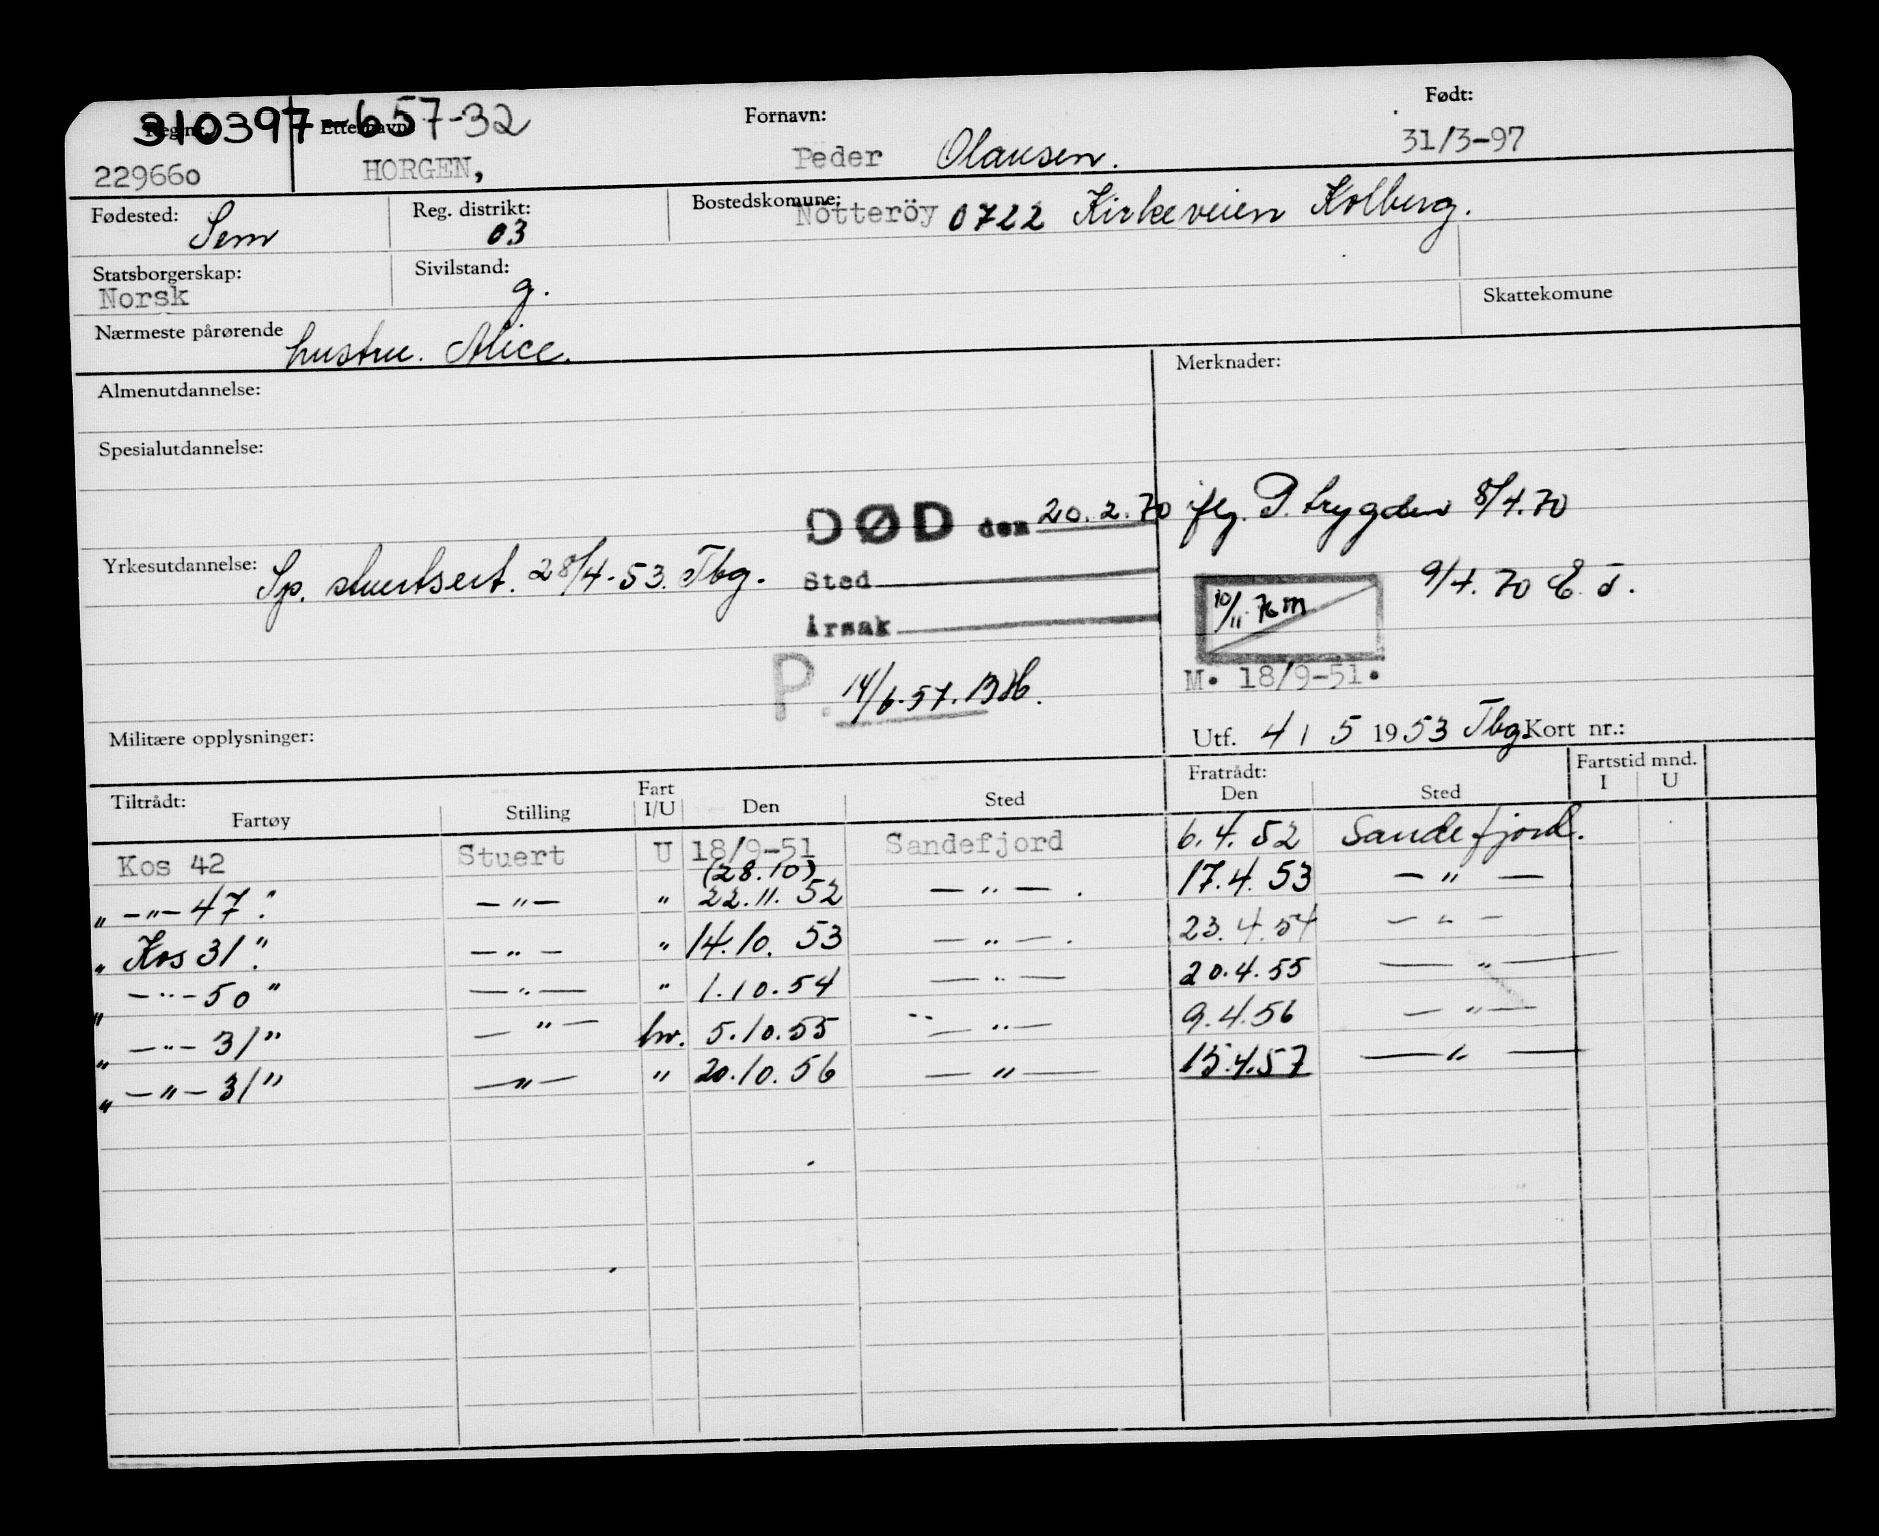 310397-657-32
Reg.nr. Etternavn: Fornavn: Født:
229660 HORGEN, Peder Olausen. 31/3-97
Fødested: Sem Reg. distrikt: 03 Bostedskomune: Nötteröy 0722 Kirkeveien Kolberg.
Statsborgerskap: Norsk Sivilstand: g. Skattekomune
Nærmeste pårørende hustru. Alice.
Almenutdannelse: Merknader:
Spesialutdannelse:
DØD den 20.2.70 iflg. P. trygden 8/4.70
Yrkesutdannelse: Sp. stuertsert. 28/4-53. Tbg. Sted 9/4.70
10/11-76 m
Årsak
P. 14/6-57. M. 18/9-51.
Militære opplysninger: Utf. 4/5 1953 Tbg Kort nr.:
Tiltrådt: Fratrådt: Fartstid mnd.
Fartøy Stilling Fart I/U Den Sted Den Sted I U
Kos 42 Stuert U 18/9-51 Sandefjord 6.4.52 Sandefjord.
(28.10)
" -"- 47". -"- " 22.11.52 -"-. 17.4.53 -"-
" Kos 31". -"- " 14.10.53 -"-. 23.4.54 -"-
" -"- 50" -"- " 1.10.54 -"- 20.4.55 -"-
" -"- 31" -"- hv. 5.10.55 -"- 9.4.56 -"-
" -"- 31" -"- " 20.10.56 -"- 15.4.57 -"-